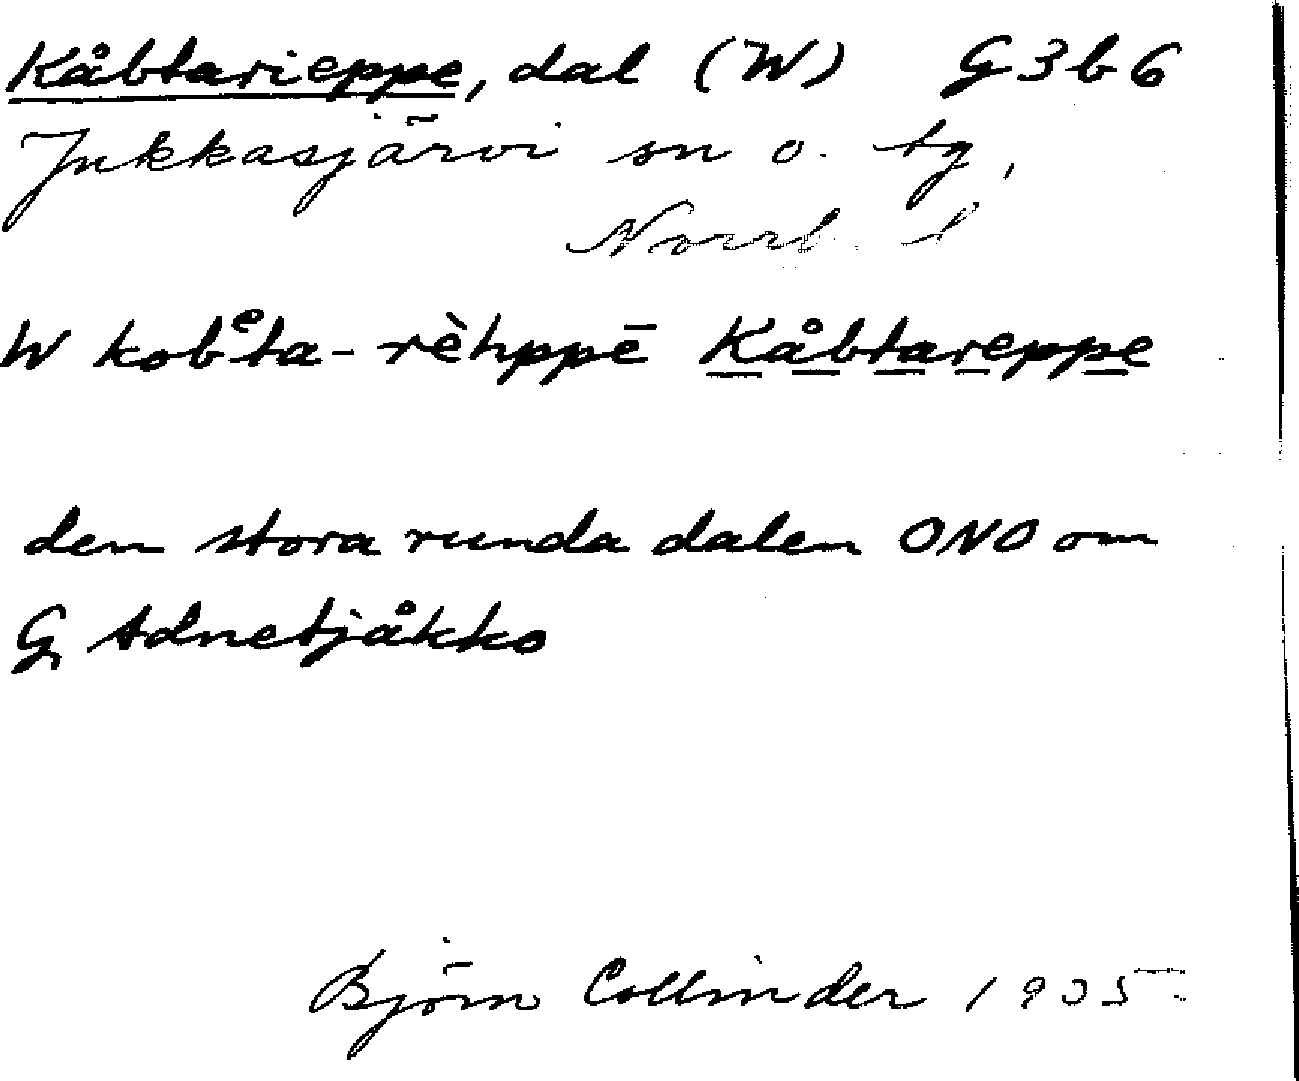 Kåbtarieppe, dal (W) G3b6
Jukkasjärvi sn o. tg,
Norrb. l
W kobᵉta-rèhppē Kåbtareppe
den stora runda dalen ONO om
G Adnetjåkko
Björn Collinder 1935